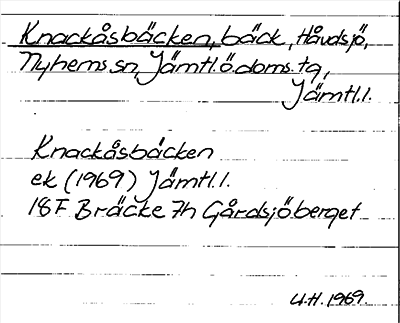 Knackåsbäcken, bäck, Håvdsjö,
Nyhems sn, Jämtl.ö.doms.tg,
Jämtl.l.
Knackåsbäcken
ek (1969) Jämtl.l.
18F Bräcke 7h Gårdsjöberget
U.H. 1969.